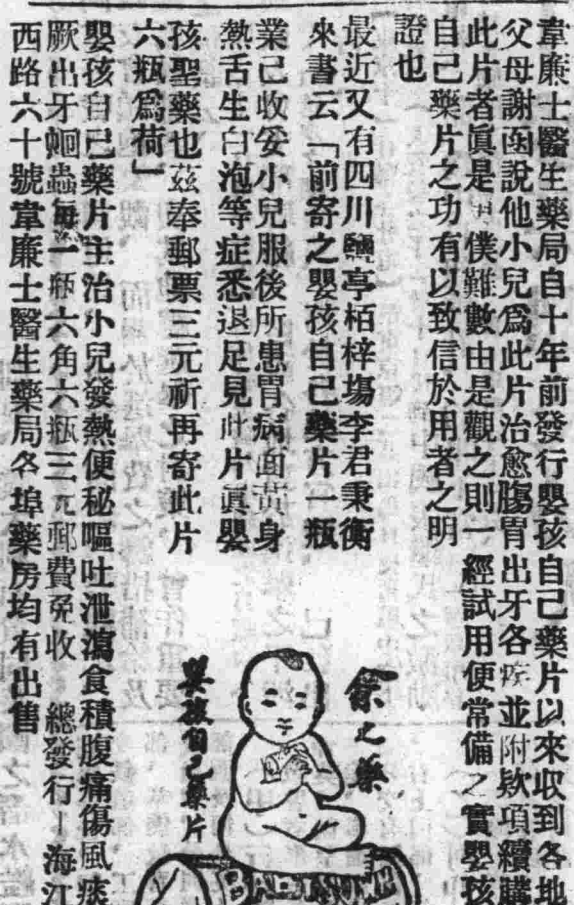 韋廉士醫生藥局自十年前發行嬰孩自己藥片以來收到各地
父母謝函說他小兒爲此片治愈腸胃出牙各疾並附欵項續購
此片者眞是僕難數由是觀之則一經試用便常備之實嬰孩
自己藥片之功有以致信於用者之明
證也
最近又有四川鹽亭栢梓塲李君秉衡
來書云「前寄之嬰孩自己藥片一瓶
業己收妥小兒服後所患胃病面黃身
熱舌生白泡等症悉退足見此片眞嬰
孩聖藥也茲奉郵票三元祈再寄此片
六瓶爲荷」
嬰孩自己藥片主治小兒發熱便秘嘔吐泄瀉食積腹痛傷風痰
厥出牙蛔蟲每一瓶六角六瓶三元郵費免收 總發行—海江
西路六十號韋廉士醫生藥局各埠藥房均有出售
余之藥
嬰孩自己藥片